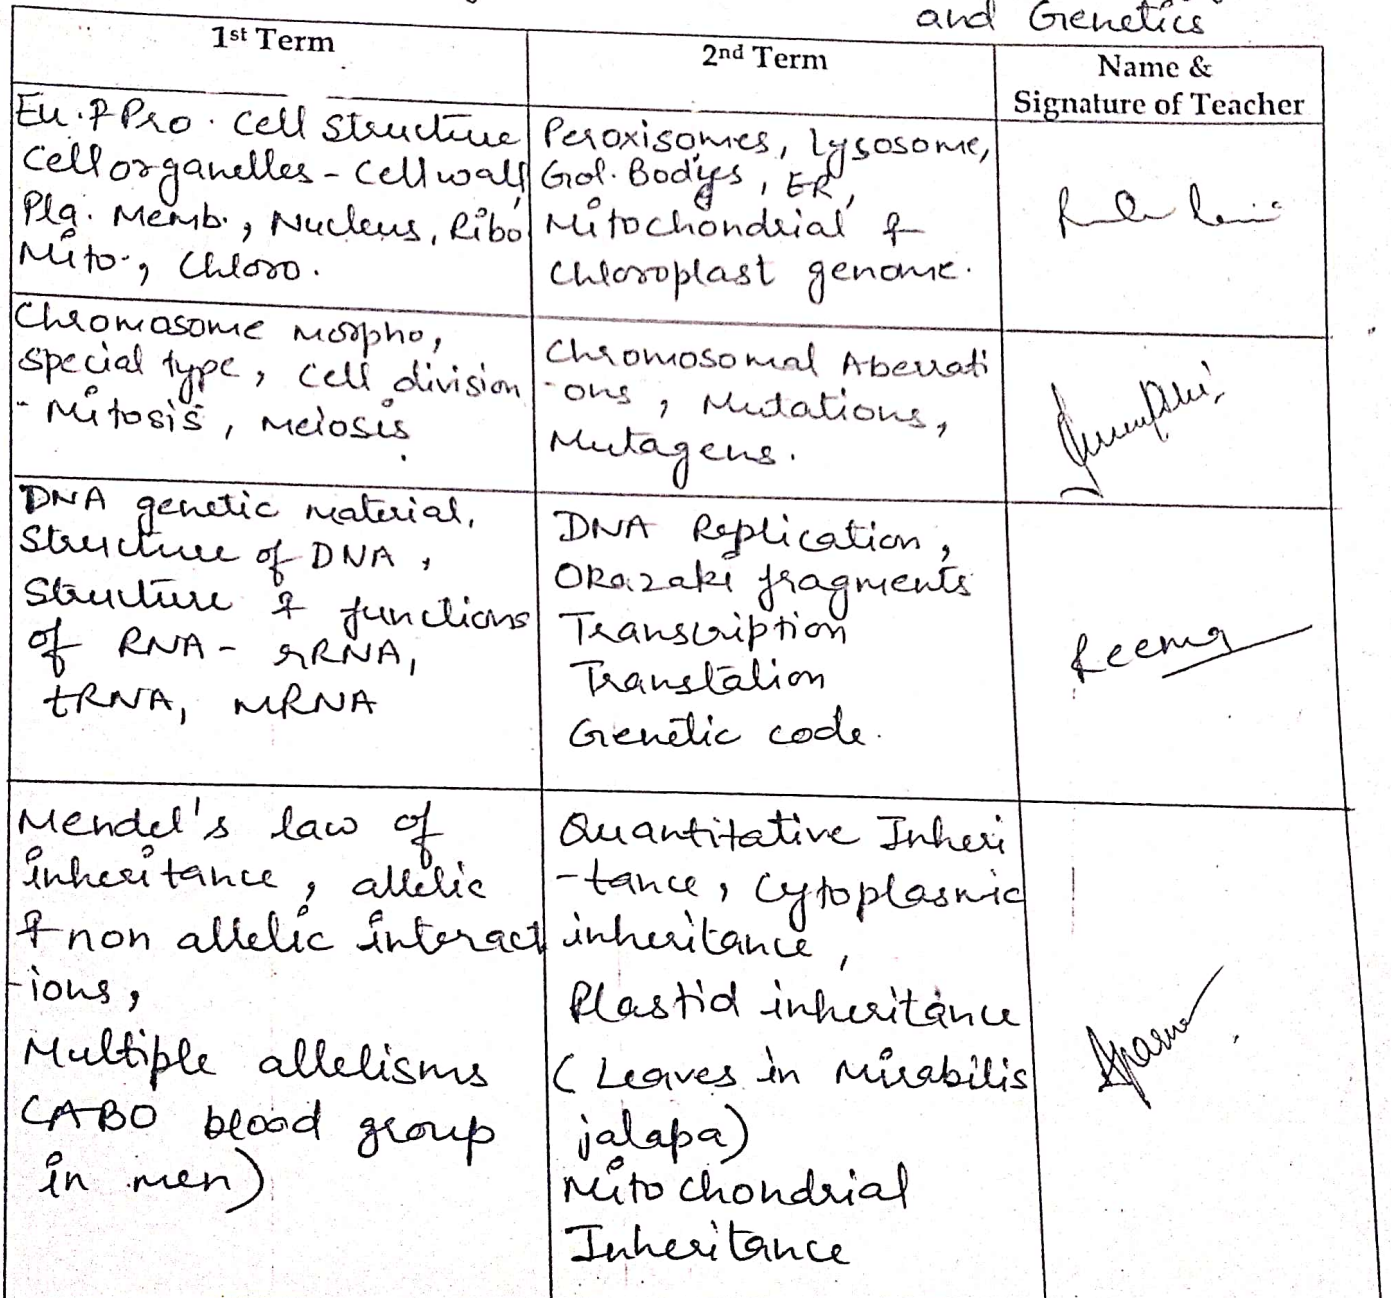 and Genetics
1st Term
2nd Term
Name &
Signature of Teacher
Eu. & Pro. Cell Structure
Cell organelles - Cell wall
Pla. Memb., Nucleus, Ribo
Mito., Chloro.
Peroxisomes, Lysosome,
Gol. Bodys, ER,
Mitochondrial &
Chloroplast genome.
Chromosome morpho,
special type, cell division
- Mitosis, meiosis.
Chromosomal Aberrati
-ons, Mutations,
Mutagens.
DNA genetic material,
Structure of DNA,
Structure & functions
of RNA - rRNA,
tRNA, mRNA
DNA Replication,
Okazaki fragments
Transcription
Translation
Genetic code.
Reema
Mendel's law of
inheritance, allelic
& non allelic interact
-ions,
Multiple allelisms
(ABO blood group
in men)
Quantitative Inheri
-tance, Cytoplasmic
inheritance,
Plastid inheritance
(Leaves in Mirabilis
jalapa)
Mitochondrial
Inheritance